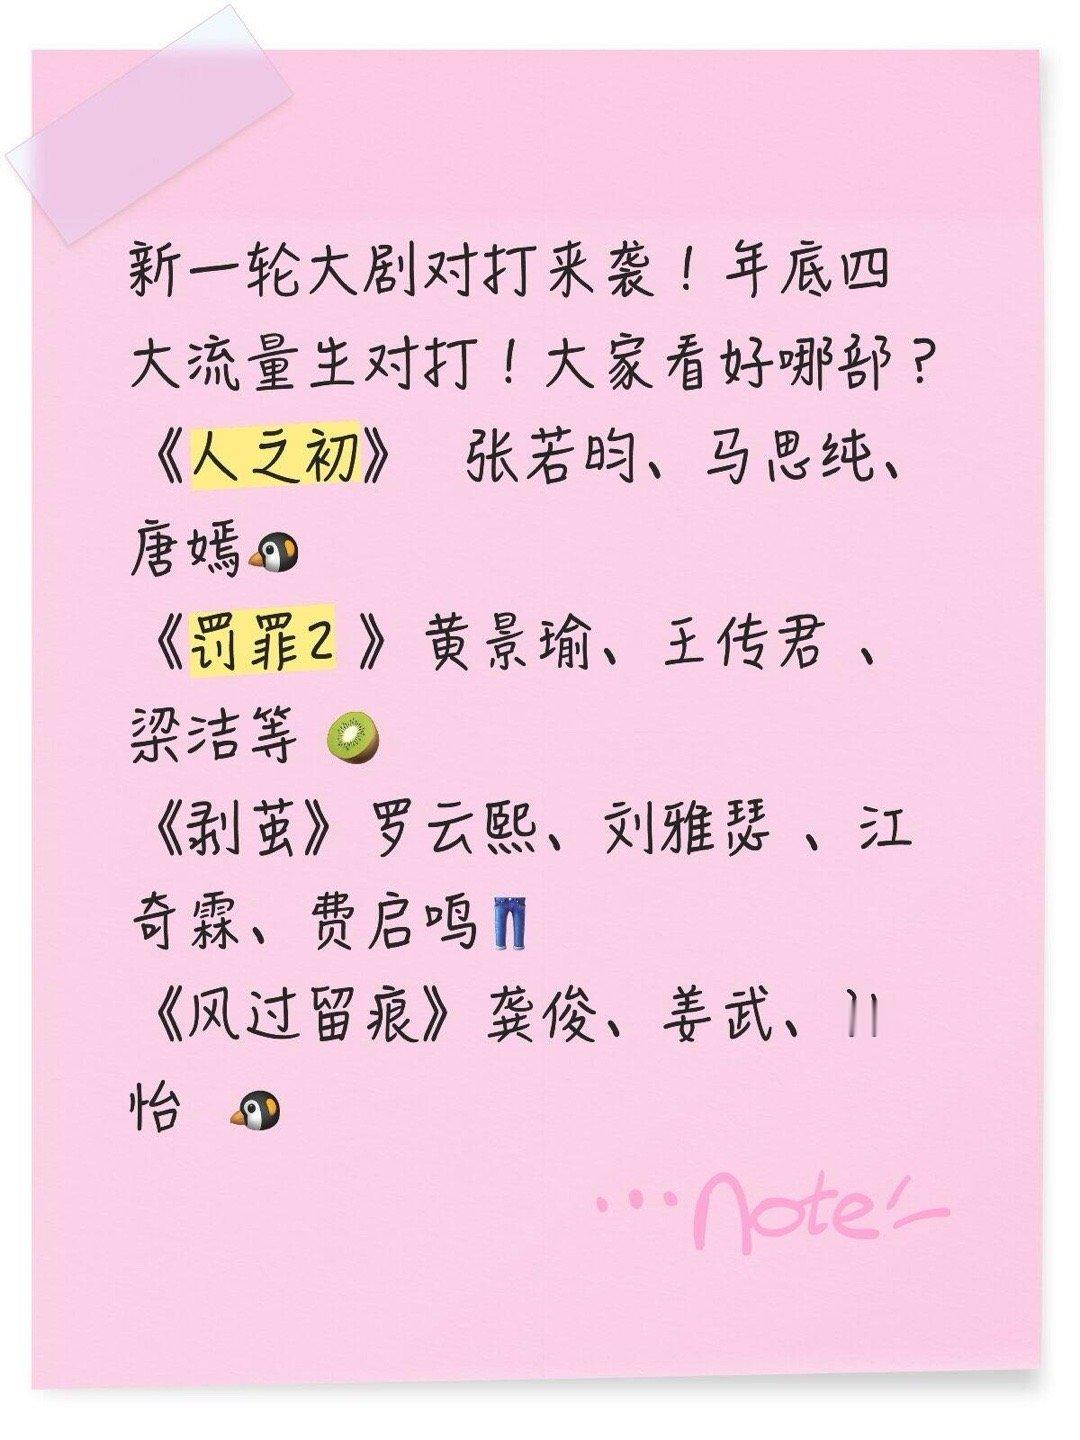 新一轮大剧对打来袭！年底四
大流量生对打！大家看好哪部？
《人之初》 张若昀、马思纯、
唐嫣
《罚罪2 》黄景瑜、王传君 、
梁洁等
《剥茧》罗云熙、刘雅瑟 、江
奇霖、费启鸣
《风过留痕》龚俊、姜武、
怡
...note